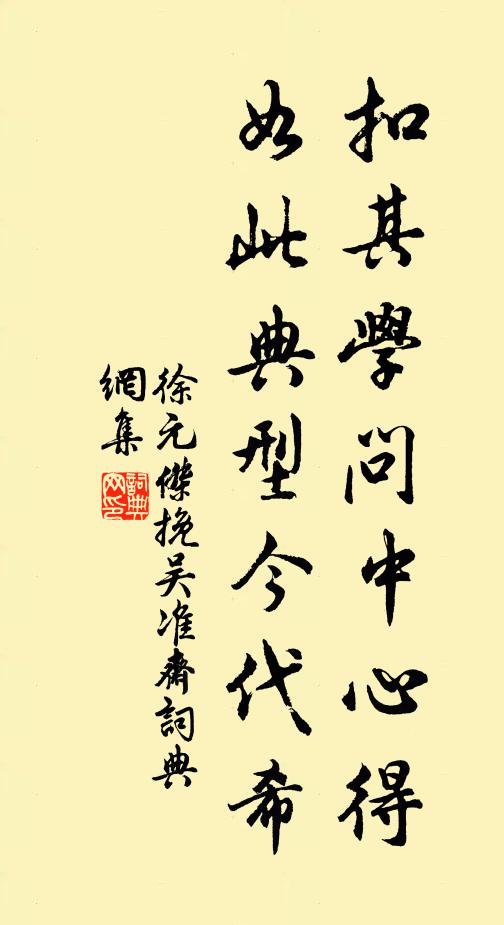 扣其學問中心得
如此典型今代希
徐元傑挽吴准齋詞典
網集
詞典
网印